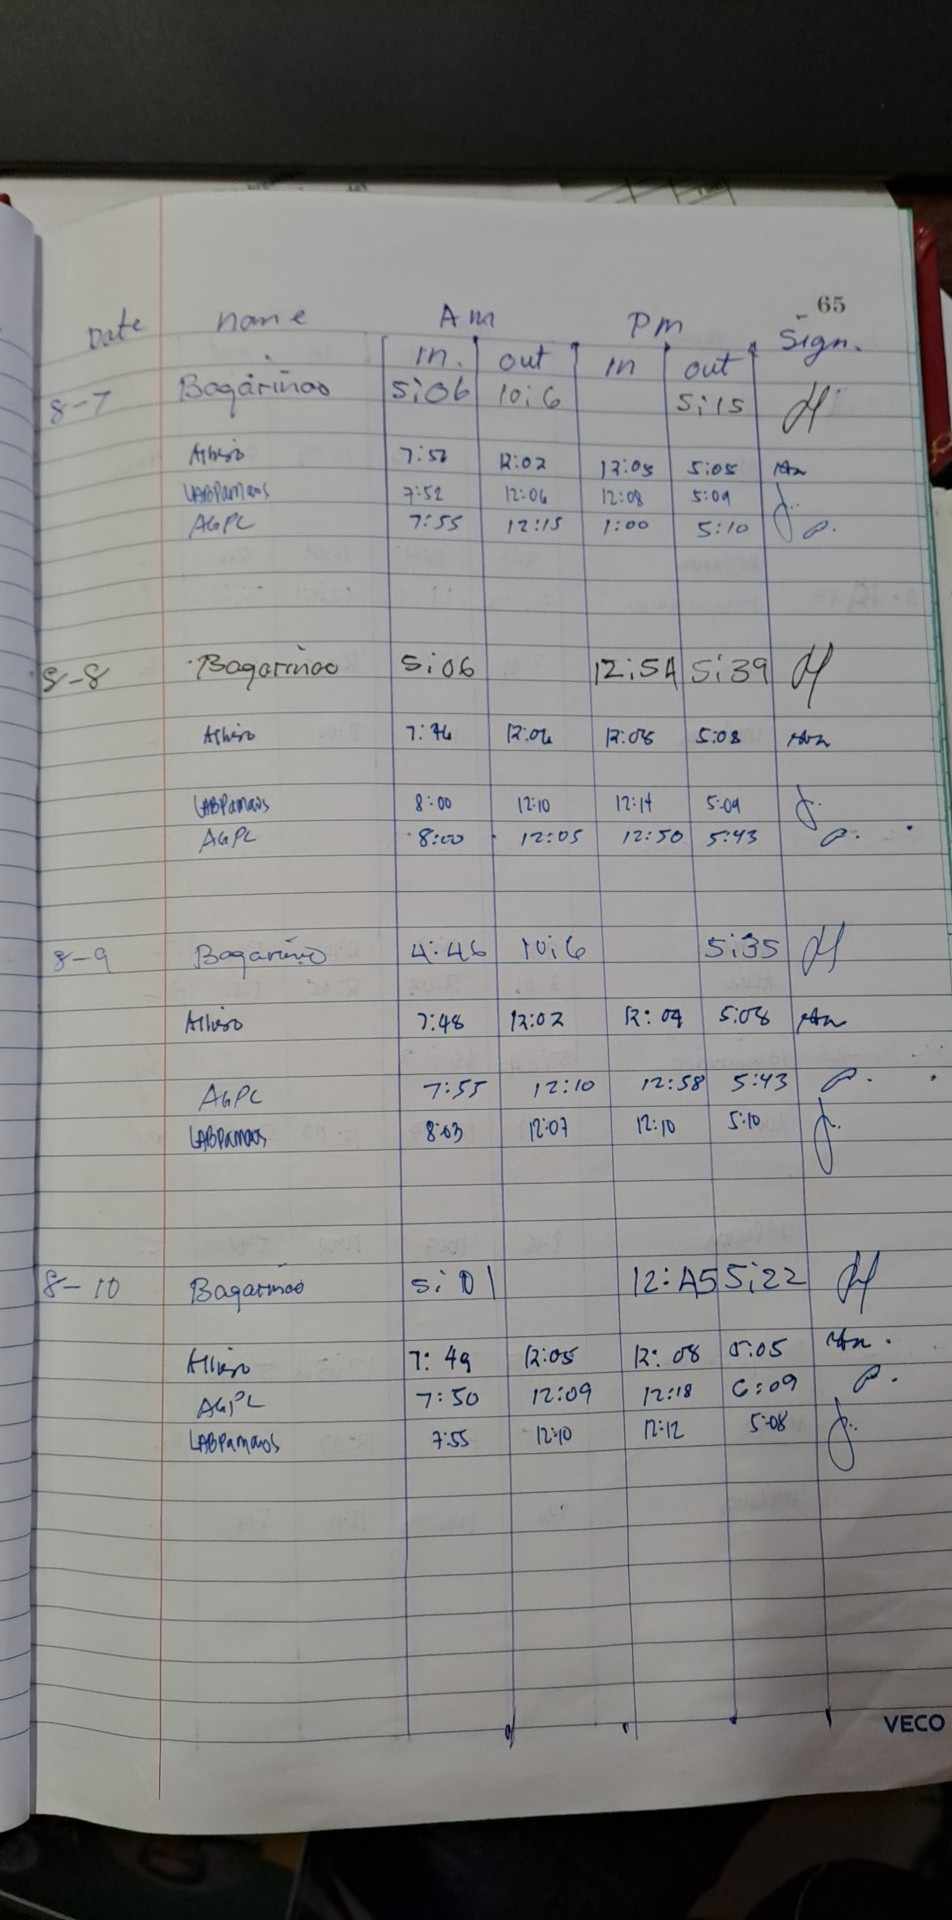 65
Date name Am Pm Sign.
in. out in out
8-7 Bagariñao 5:06 10:6 5:15
Albiso 7:52 12:02 12:05 5:05
LABPamaos 7:52 12:06 12:08 5:09
AGPC 7:55 12:15 1:00 5:10
8-8 Bagariñao 5:06 12:54 5:39
Albiso 7:46 12:06 12:08 5:08
LABPamaos 8:00 12:10 12:14 5:09
AGPC 8:00 12:05 12:50 5:43
8-9 Bagariño 4:46 10:6 5:35
7:48 12:02 12:09 5:08
AGPC 7:55 12:10 12:58 5:43
LABPamaos 8:03 12:07 12:10 5:10
8-10 Bagariñao 5:01 12:45 5:22
7:49 12:05 12:08 5:05
AGPC 7:50 12:09 12:18 6:09
LABPamaos 7:55 12:10 12:12 5:08
VECO